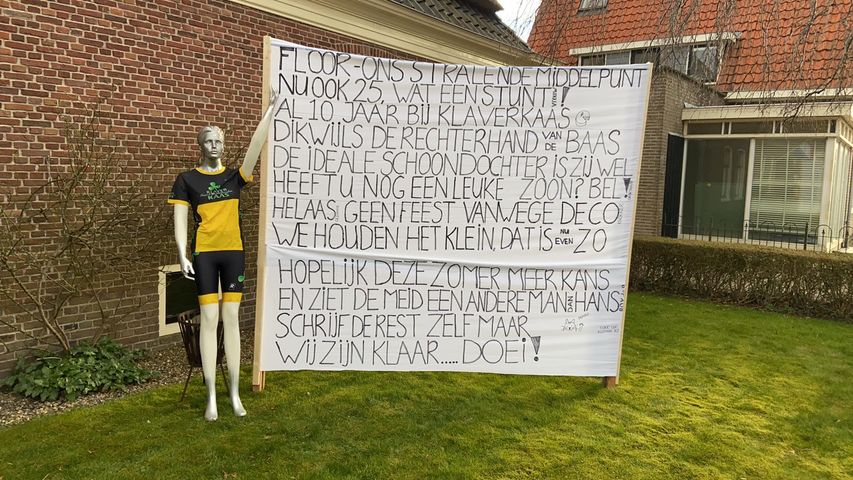 FLOOR-ONS STRALENDE MIDDELPUNT
NU OOK 25, WAT EEN STUNT!
AL 10 JAAR BIJ KLAVERKAAS
DIKWIJLS DE RECHTERHAND VAN DE BAAS
DE IDEALE SCHOONDOCHTER IS ZIJ WEL
HEEFT U NOG EEN LEUKE ZOON? BEL!
HELAAS GEEN FEEST VANWEGE DE CO
WE HOUDEN HET KLEIN, DAT IS NU EVEN ZO
HOPELIJK DEZE ZOMER MEER KANS
EN ZIET DE MEID EEN ANDERE MAN DAN HANS
SCHRIJF DE REST ZELF MAAR
WIJ ZIJN KLAAR..... DOEI!
KAAS